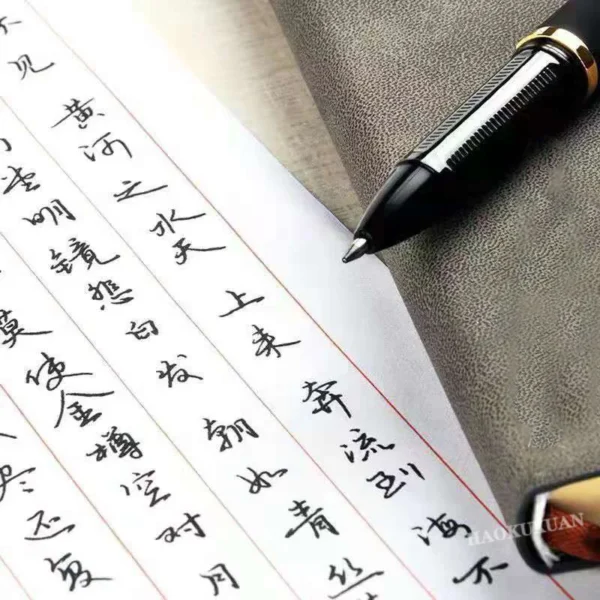 不见黄河之水天上来奔流到海不
堂明镜悲白发朝如青丝
莫使金樽空对月
尽还复
HAOXUXUAN